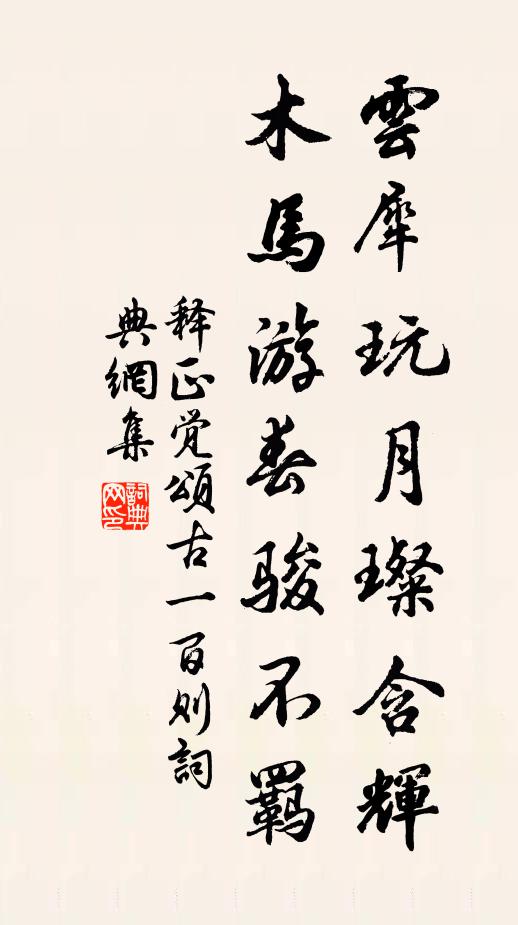 雲犀玩月璨含輝
木馬游春駿不羈
释正覚頌古一百则詞
典網集
詞典
网印